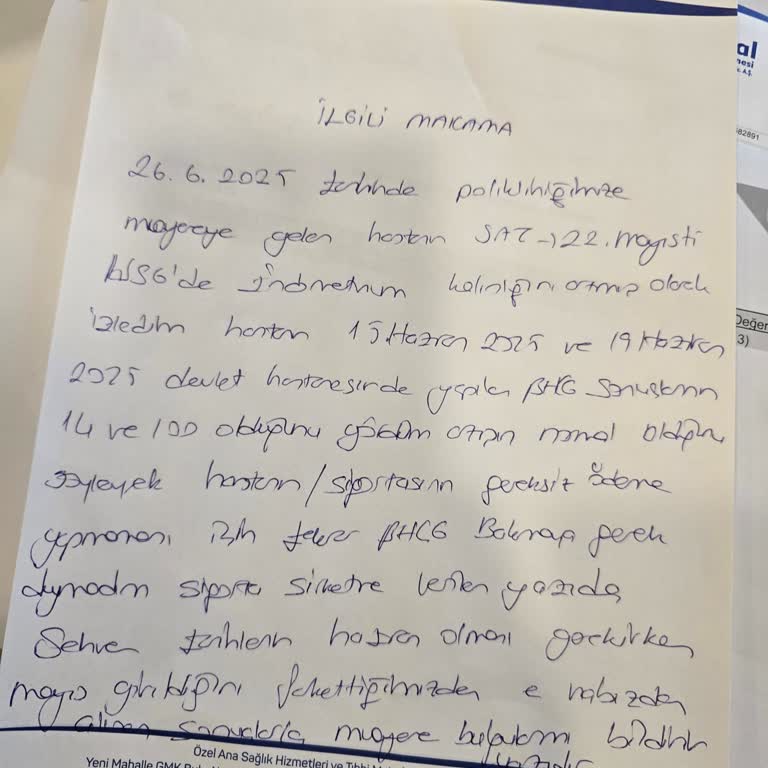 İLGİLİ MAKAMA
26.6.2025 tarihinde polikliniğimize
muayeneye gelen hastanın SAT → 22. mayıstı
USG'de Endometrium kalınlığını artmış olarak
izledim hastanın 15 Haziran 2025 ve 19 Haziran
2025 devlet hastanesinde yapılan βHCG sonuçlarının
14 ve 100 olduğunu gördüm artışın normal olduğunu
söyleyerek hastanın/sigortasının gereksiz ödeme
yapmaması için tekrar βHCG Bakmaya gerek
duymadım sigorta şirketine verilen yazıda
Sehven tarihlerin haziran olması gerekirken
mayıs girildiğini farkettiğimizden e nabızdan
alınan sonuçlarla muayene bulgularını bildirir
yazıdır
Özel Ana Sağlık Hizmetleri ve Tıbbi
Yeni Mahalle GMK
al
nesi
A.Ş.
582891
Değer
3)